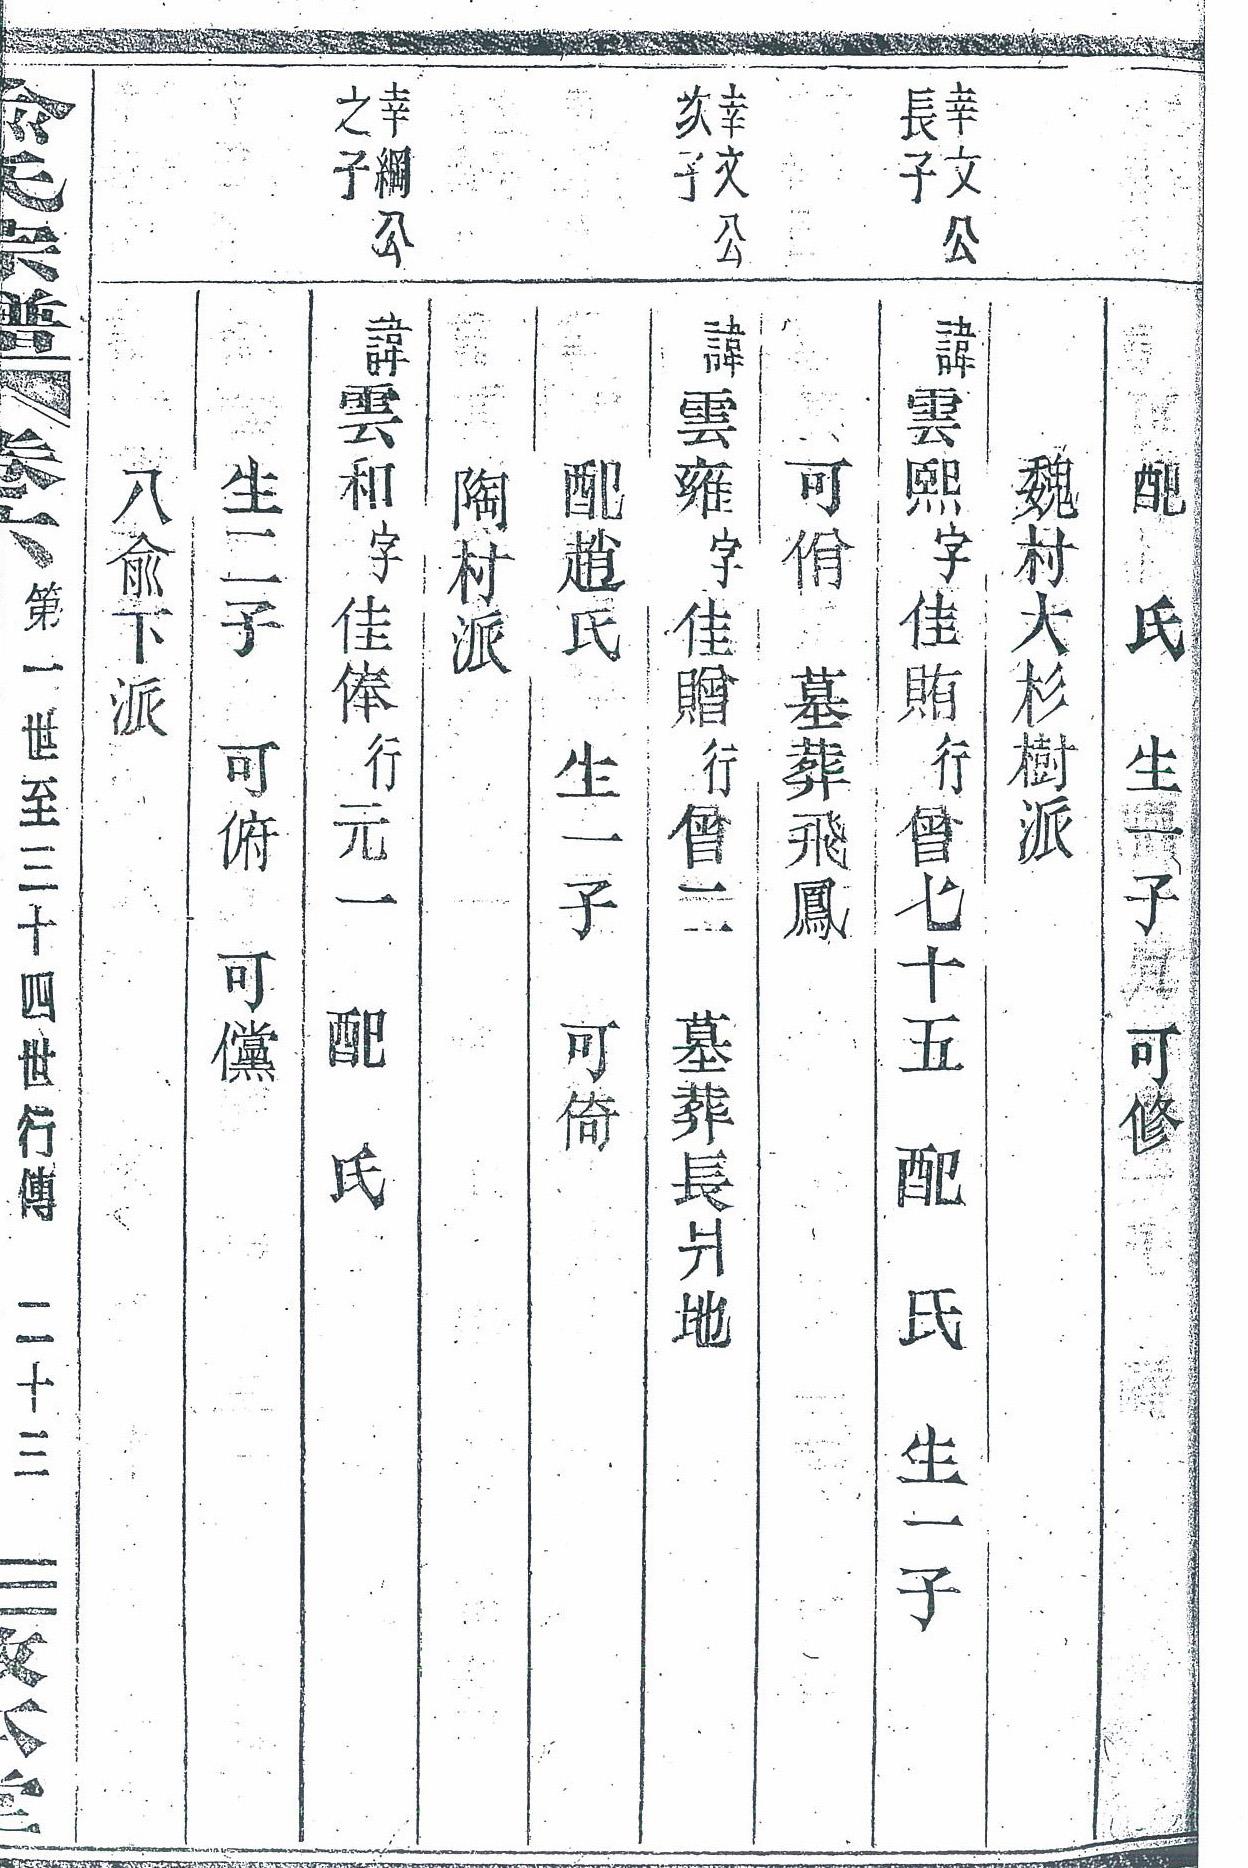 配 氏 生一子 可修
魏村大杉樹派
幸文公
長子
諱雲熙字佳賄行曾七十五 配 氏 生一子
可佾 墓葬飛鳳
幸文公
次子
諱雲雍字佳贈行曾二 墓葬長地
配趙氏 生一子 可倚
陶村派
幸綱公
之子
諱雲和字佳俸行元一 配 氏
生二子 可俯 可儻
八俞下派
俞氏宗譜 卷六 第一世至三十四世行傳 二十三